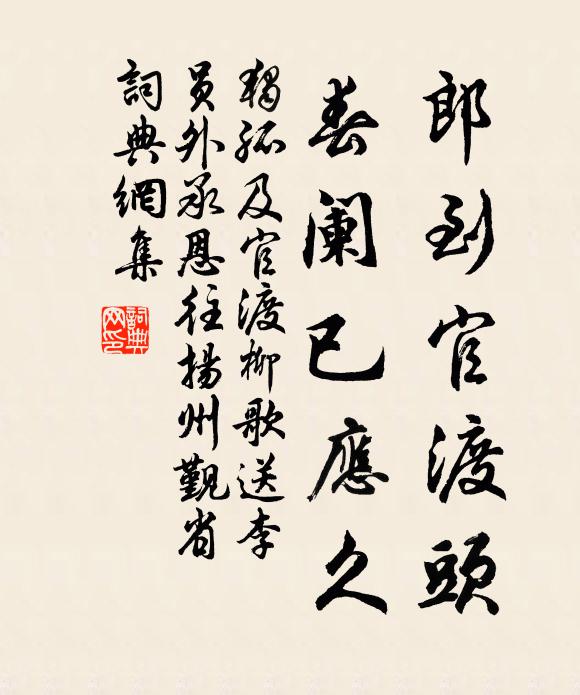 郎到官渡頭
春闌已應久
獨孤及官渡柳歌送李
員外承恩往揚州覲省
詞典網集
詞典网印